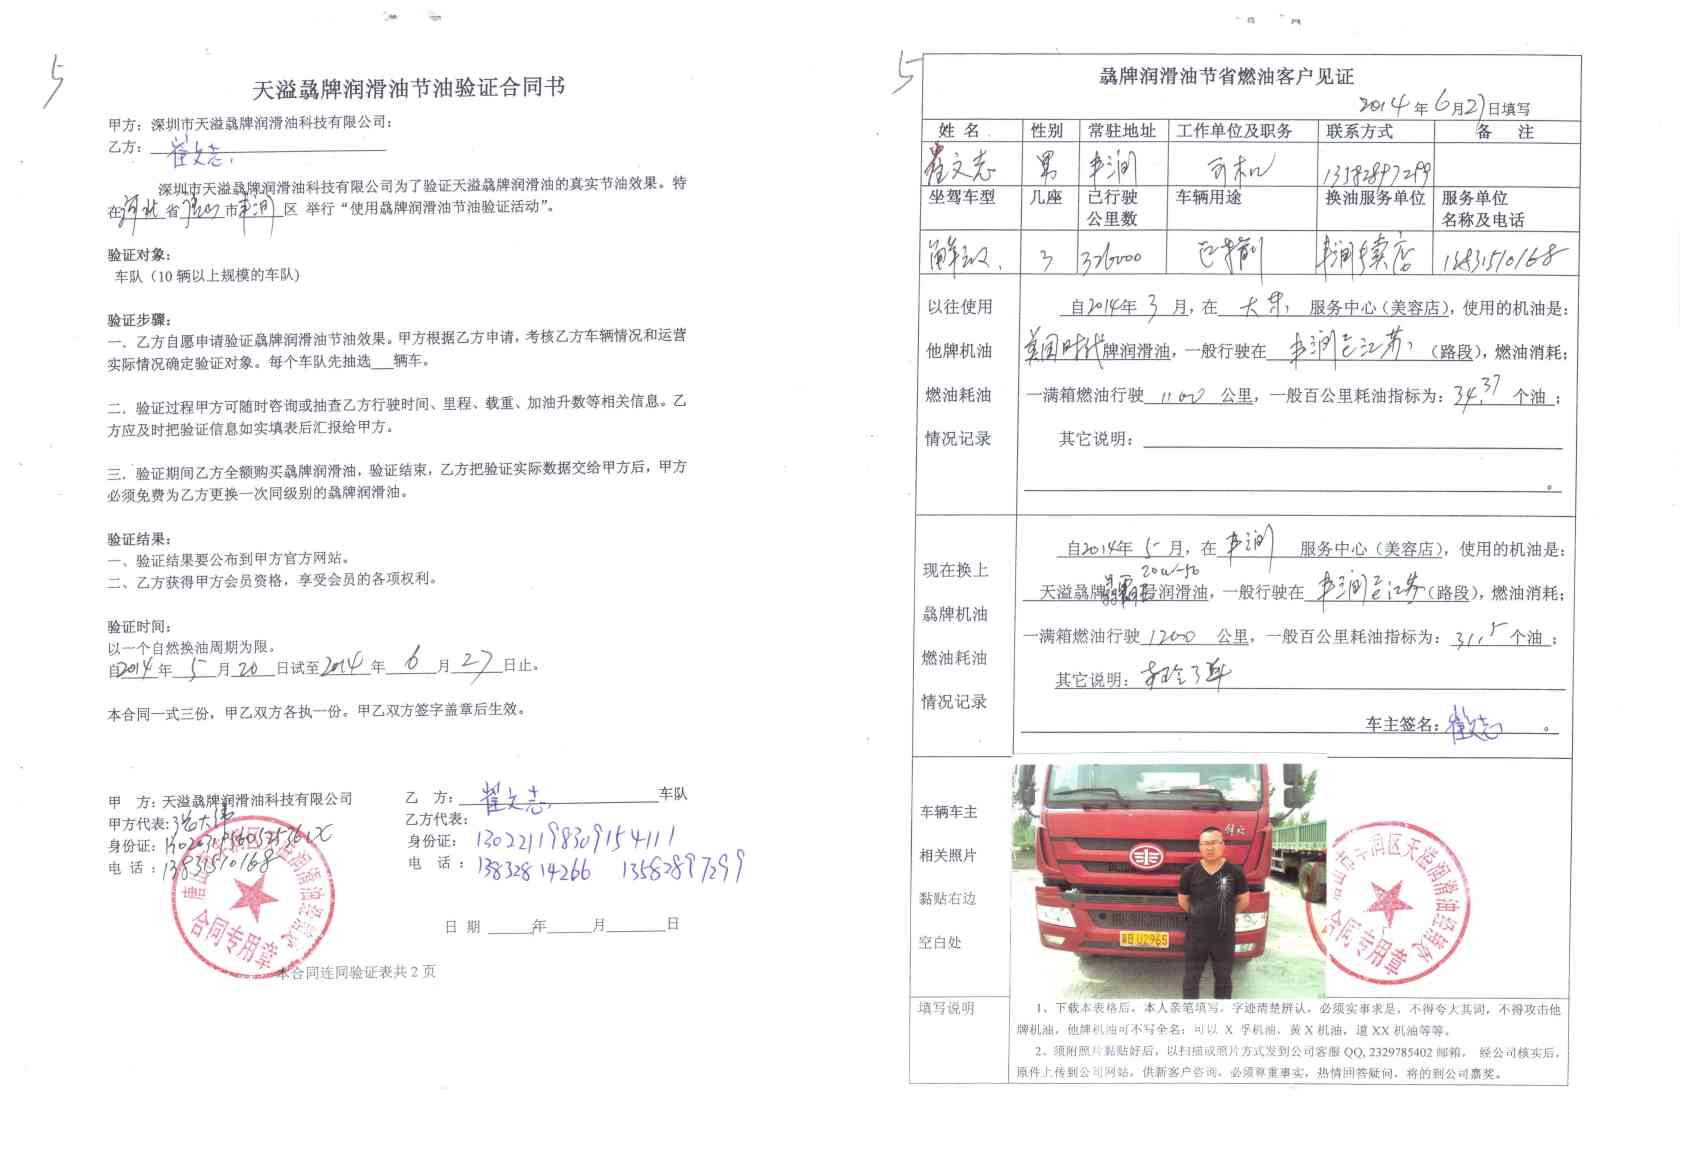 5
天溢骉牌润滑油节油验证合同书
甲方：深圳市天溢骉牌润滑油科技有限公司：
乙方：崔文志
深圳市天溢骉牌润滑油科技有限公司为了验证天溢骉牌润滑油的真实节油效果。特
在河北省唐山市丰润区 举行“使用骉牌润滑油节油验证活动”。
验证对象：
车队（10 辆以上规模的车队）
验证步骤：
一．乙方自愿申请验证骉牌润滑油节油效果。甲方根据乙方申请，考核乙方车辆情况和运营
实际情况确定验证对象。每个车队先抽选___辆车。
二．验证过程甲方可随时咨询或抽查乙方行驶时间、里程、载重、加油升数等相关信息。乙
方应及时把验证信息如实填表后汇报给甲方。
三．验证期间乙方全额购买骉牌润滑油，验证结束，乙方把验证实际数据交给甲方后，甲方
必须免费为乙方更换一次同级别的骉牌润滑油。
验证结果：
一、验证结果要公布到甲方官方网站。
二、乙方获得甲方会员资格，享受会员的各项权利。
验证时间：
以一个自然换油周期为限。
自2014年 5 月 20 日试至2014 年 6 月 27 日止。
本合同一式三份，甲乙双方各执一份。甲乙双方签字盖章后生效。
甲 方：天溢骉牌润滑油科技有限公司
甲方代表：
身份证：
电 话：13831510168
合同专用章
乙 方：崔文志 车队
乙方代表：
身份证： 130221198309154111
电 话： 13832814266 13582897299
日 期 ______年______月______日
本合同连同验证表共 2 页
5
骉牌润滑油节省燃油客户见证
2014 年 6 月 27 日填写
姓 名 性别 常驻地址 工作单位及职务 联系方式 备 注
崔文志 男 丰润 司机 13582897299
坐驾车型 几座 已行驶公里数 车辆用途 换油服务单位 服务单位名称及电话
解放 3 326000 丰润专卖店 13831510168
以往使用
他牌机油
燃油耗油
情况记录
自2014年 3 月，在 服务中心（美容店），使用的机油是：
美国时代牌润滑油，一般行驶在 丰润至江苏 （路段），燃油消耗；
一满箱燃油行驶 1100 公里，一般百公里耗油指标为：34.37 个油；
其它说明：
。
现在换上
骉牌机油
燃油耗油
情况记录
自2014年 5 月，在 丰润 服务中心（美容店），使用的机油是：
20w-50
天溢骉牌润滑油，一般行驶在 丰润至江苏（路段），燃油消耗；
一满箱燃油行驶 1200 公里，一般百公里耗油指标为：31.5 个油；
其它说明：
车主签名：崔文志 。
车辆车主
相关照片
黏贴右边
空白处
解放
冀B U2965
唐山市丰润区天溢润滑油经销处
合同专用章
填写说明
1、下载本表格后，本人亲笔填写，字迹清楚辨认，必须实事求是，不得夸大其词，不得攻击他
牌机油，他牌机油可不写全名；可以 X 孚机油，黄 X 机油，道 XX 机油等等。
2、须附照片黏贴好后，以扫描或照片方式发到公司客服 QQ, 2329785402 邮箱， 经公司核实后，
原件上传到公司网站，供新客户咨询，必须尊重事实，热情回答疑问，将的到公司嘉奖。